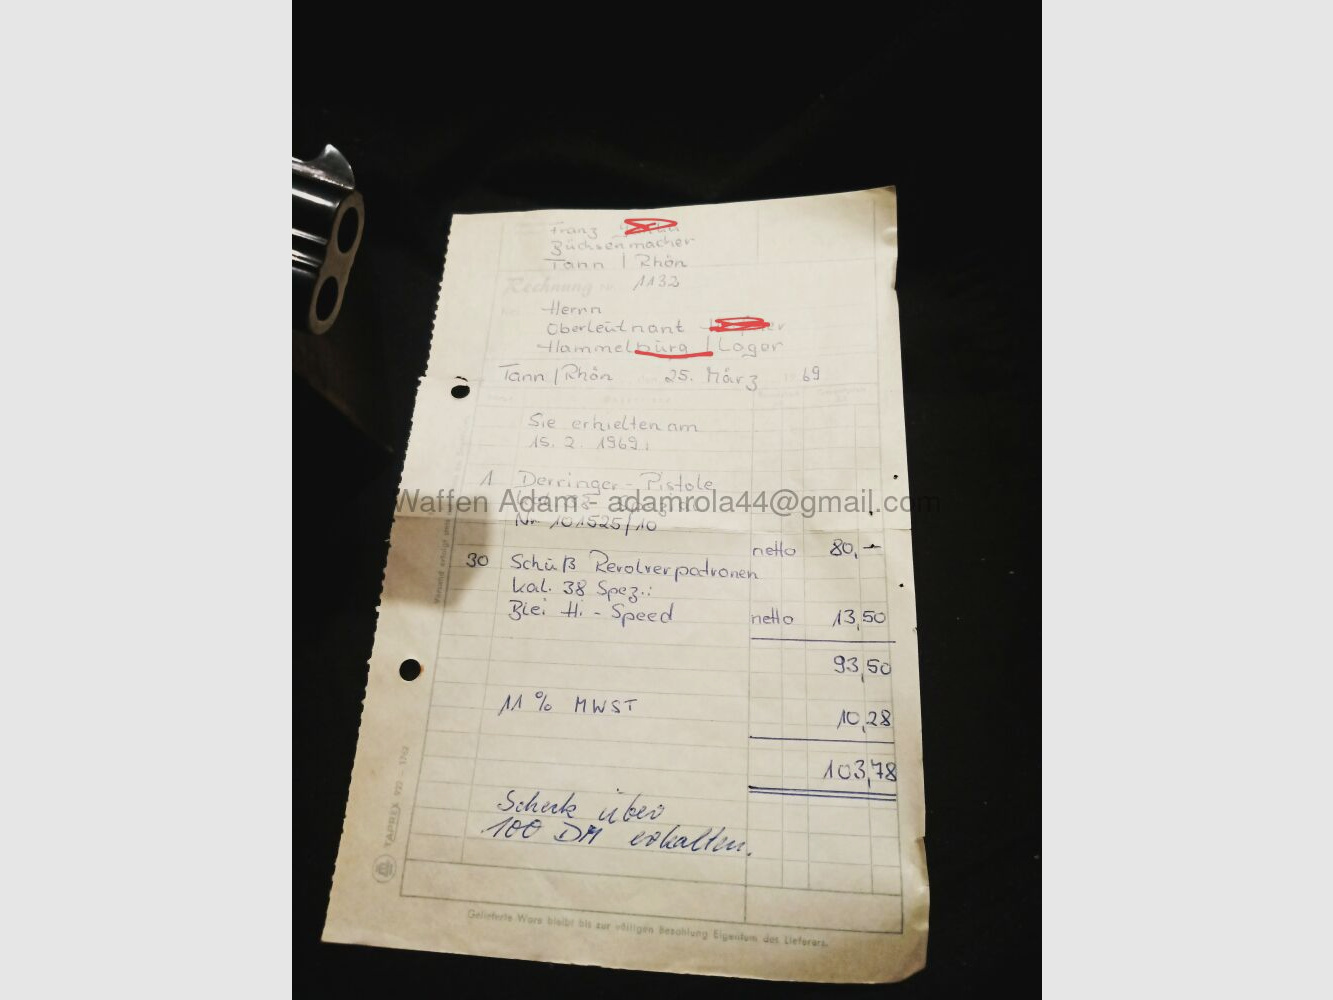 Franz
Büchsenmacher
Tann / Rhön
Rechnung Nr. 1132
Herrn
Oberleutnant
Hammelburg / Lager
Tann / Rhön 25. März 1969
Sie erhielten am
15. 2. 1969:
1 Derringer - Pistole
Waffen Adam - adamrola44@gmail.com
Nr. 101525/10
netto 80,—
30 Schuß Revolverpatronen
Kal. 38 Spez.:
Blei Hi - Speed netto 13,50
93,50
11 % MWST 10,28
103,78
Scheck über
100 DM erhalten.
TAPREX
Gelieferte Ware bleibt bis zur völligen Bezahlung Eigentum des Lieferers.